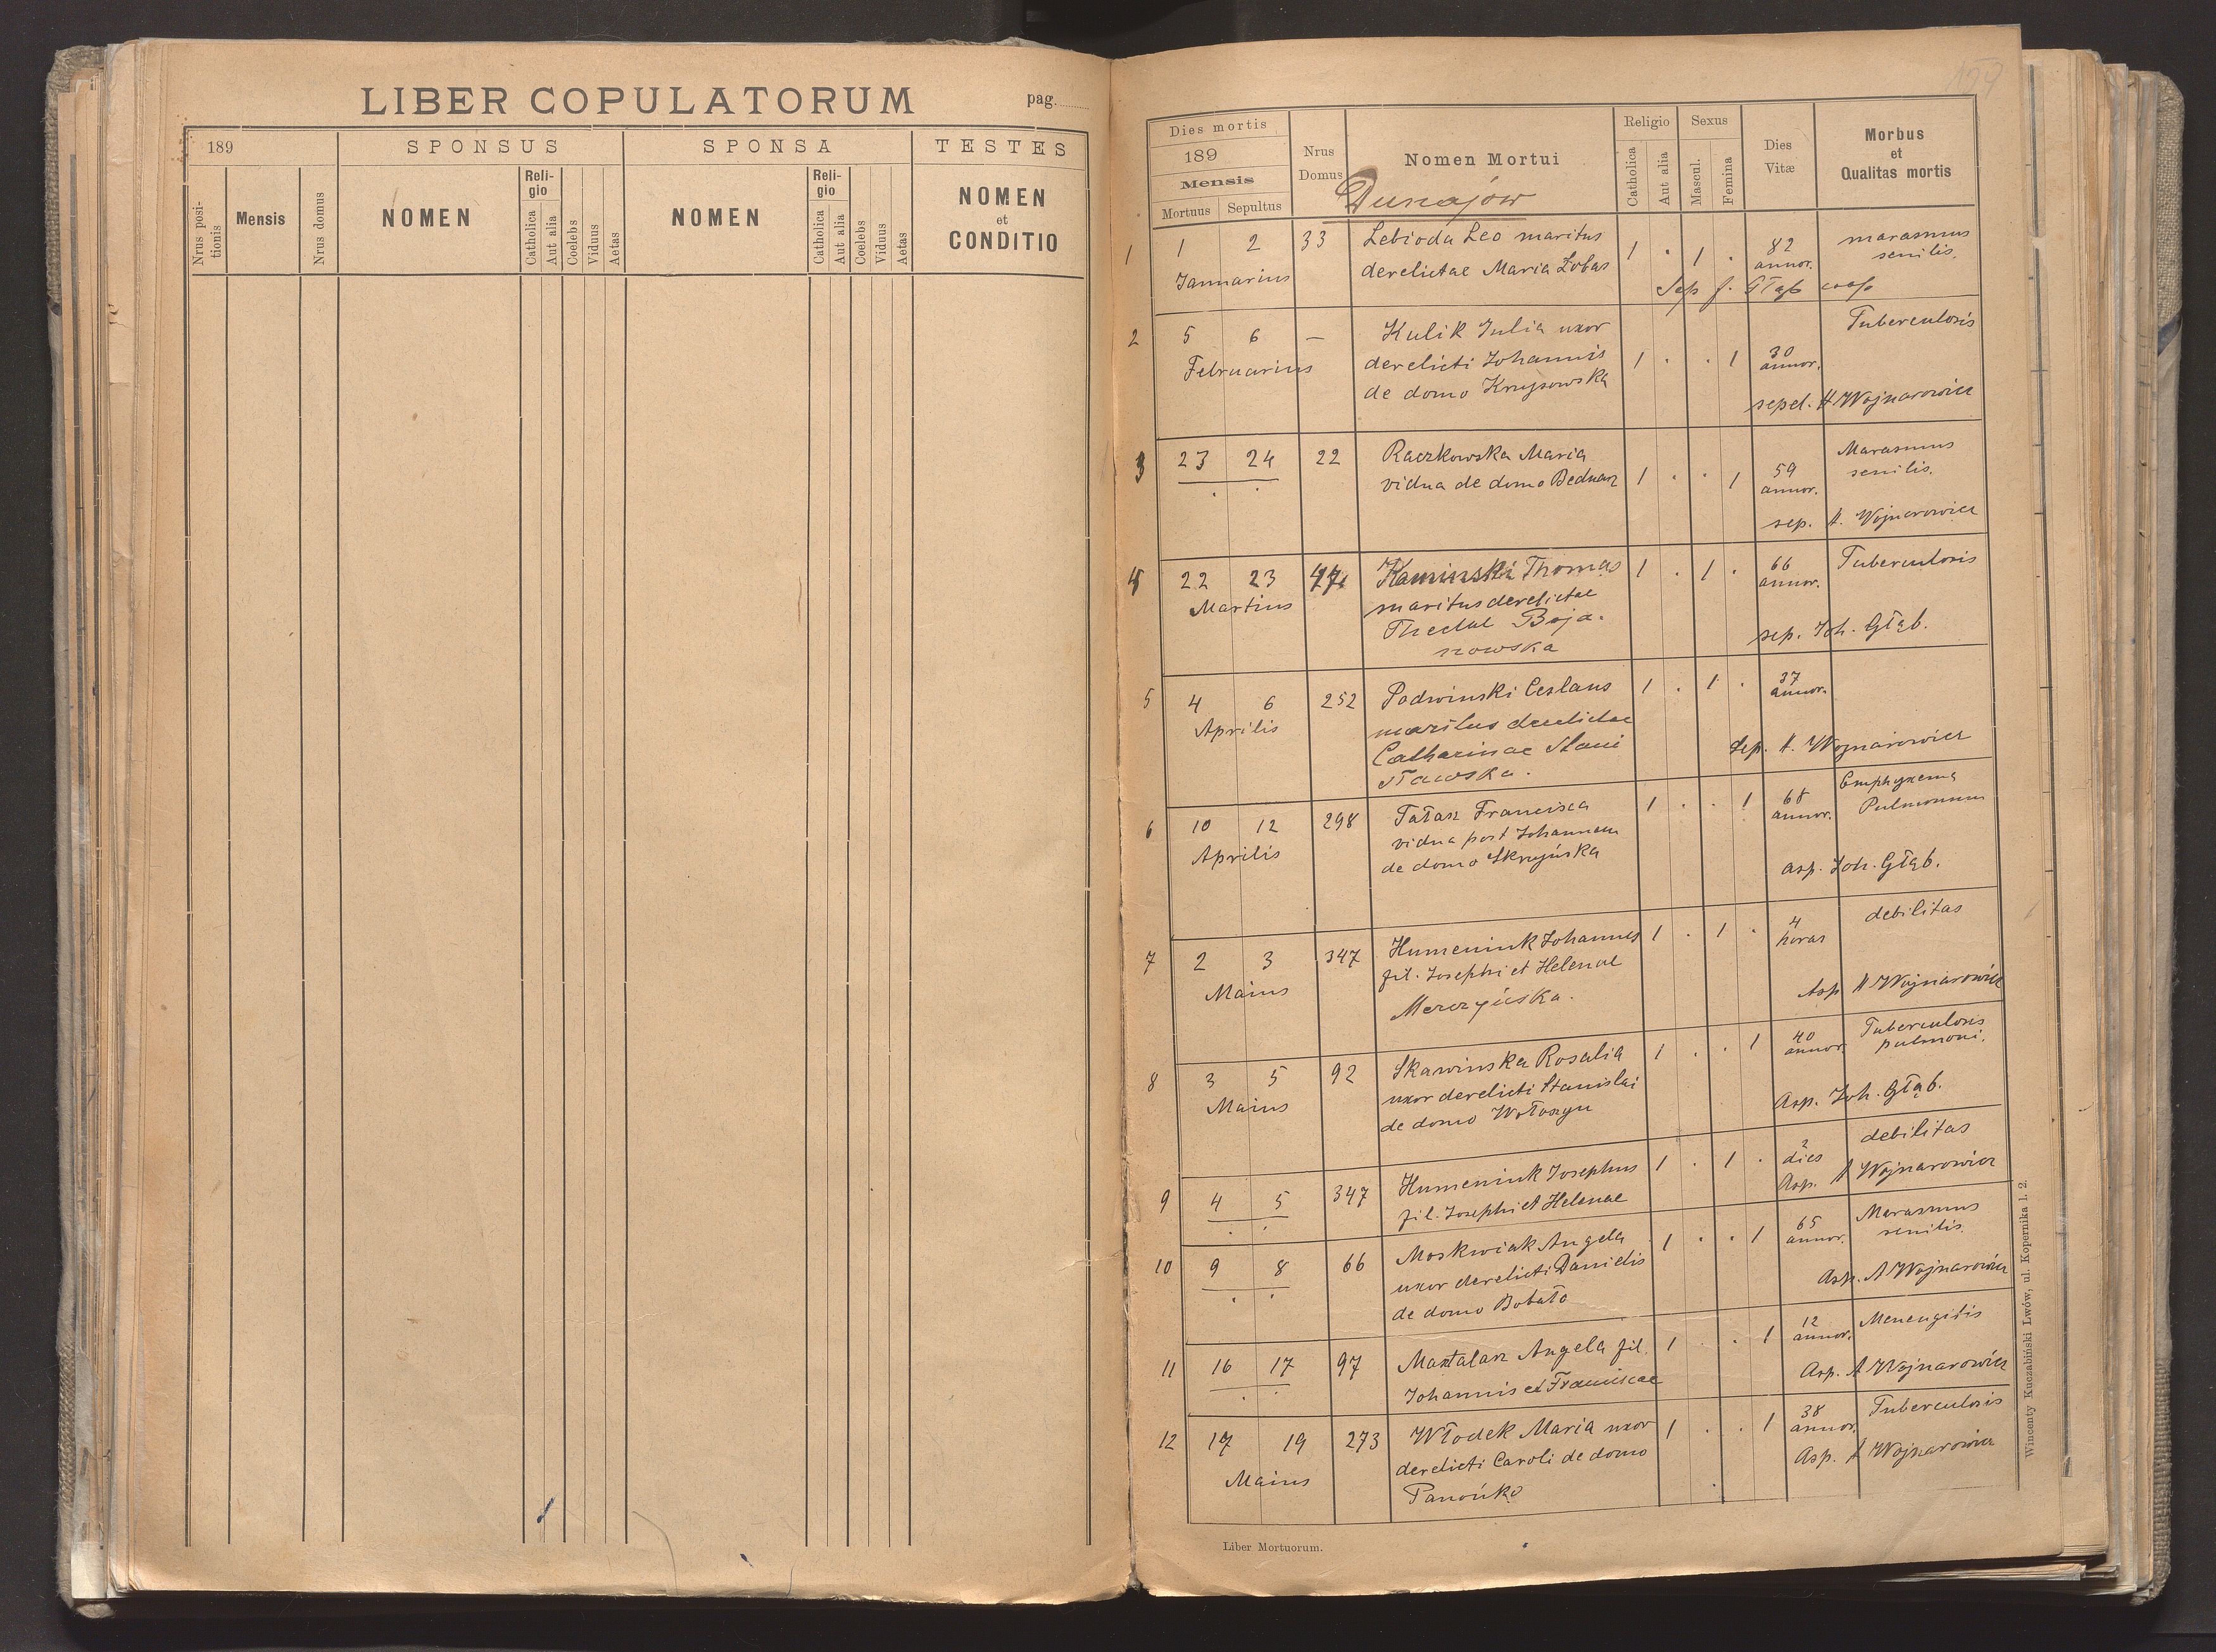 LIBER COPULATORUM
pag.
189
SPONSUS
SPONSA
TESTES
Nrus positionis
Mensis
Nrus domus
NOMEN
Religio
Catholica
Aut alia
Coelebs
Viduus
Aetas
NOMEN
Religio
Catholica
Aut alia
Coelebs
Viduus
Aetas
NOMEN
et
CONDITIO
159
Dies mortis
189
Mensis
Mortuus Sepultus
Nrus
Domus
Nomen Mortui
Dunajów
Religio
Catholica
Aut alia
Sexus
Mascul.
Femina
Dies
Vitæ
Morbus
et
Qualitas mortis
1 1 2 33 Lebioda Leo maritus 1 . 1 . 82 marasmus
Januarius derelictae Maria Łobas annor. senilis.
Sep J. Głąb coop
2 5 6 — Kulik Julia uxor Tuberculosis
Februarius derelicti Johannis 1 . . 1 30 annor.
de domo
sepel. A Wojnarowicz
3 23 24 22 Raczkowska Maria Marasmus
vidua de domo Bednarz 1 . . 1 59 annor. senilis.
sep. A. Wojnarowicz
4 22 23 47 Kaminski Thomas 1 . 1 . 66 annor. Tuberculosis
Martius maritus derelictae
Theclae Boja-
nowska sep. Joh. Głąb.
5 4 6 252 Podwinski Ceslaus 1 . 1 . 37 annor.
Aprilis maritus derelictae
Catharinae Stani
sławska. Sep. A. Wojnarowicz
6 10 12 298 Tatarz Francisca 1 . . 1 68 annor. Emphysema
Aprilis vidua post Johannem Pulmonum
de domo Skrzyńska
asp. Joh. Głąb.
7 2 3 347 Humeniuk Johannes 1 . 1 . 4 horas debilitas
Maius fil. Josephi et Helenae
Merczyńska. Asp A Wojnarowicz
8 3 5 92 Skawinska Rosalia 1 . . 1 40 annor. Tuberculosis
Maius uxor derelicti Stanislai pulmoni.
de domo Wołoszyn Asp. Joh. Głąb.
9 4 5 347 Humeniuk Josephus 1 . 1 . 2 dies debilitas
fil. Josephi et Helenae Asp. A Wojnarowicz
10 9 8 66 Moskwiak Angela 1 . . 1 65 annor. Marasmus
uxor derelicti Danielis senilis
de domo Bobało Asp. A Wojnarowicz
11 16 17 97 Maztalarz Angela fil. 1 . . 1 12 annor. Menengitis
Johannis et Franciscae Asp. A Wojnarowicz
12 17 19 273 Włodek Maria uxor 1 . . 1 38 annor. Tuberculosis
Maius derelicti Caroli de domo Asp. A Wojnarowicz
Panońko
Liber Mortuorum.
Wincenty Kuczabiński Lwów, ul. Kopernika l. 2.